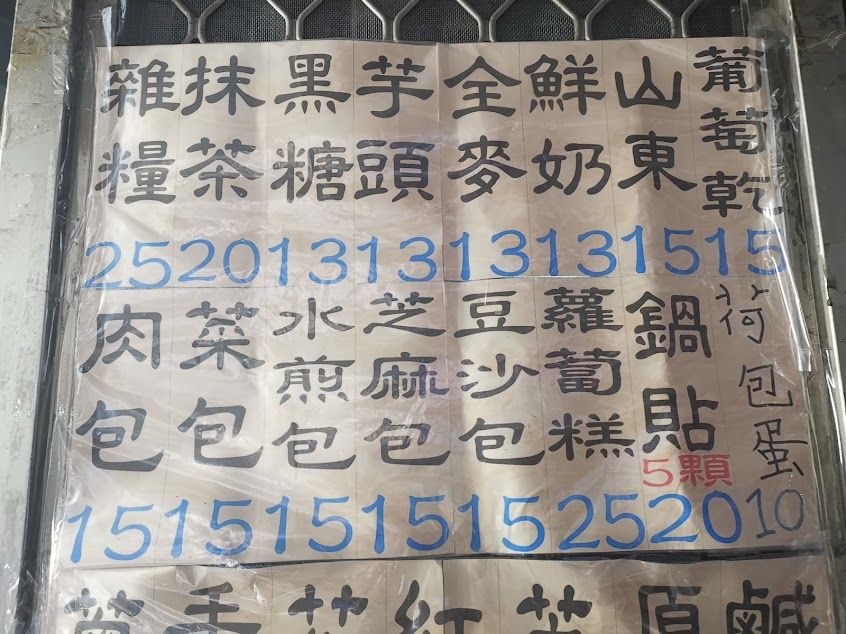 葡萄乾 15
山東 15
鮮奶 13
全麥 13
芋頭 13
黑糖 13
抹茶 20
雜糧 25
荷包蛋 10
鍋貼 5顆 20
蘿蔔糕 25
豆沙包 15
芝麻包 15
水煎包 15
菜包 15
肉包 15